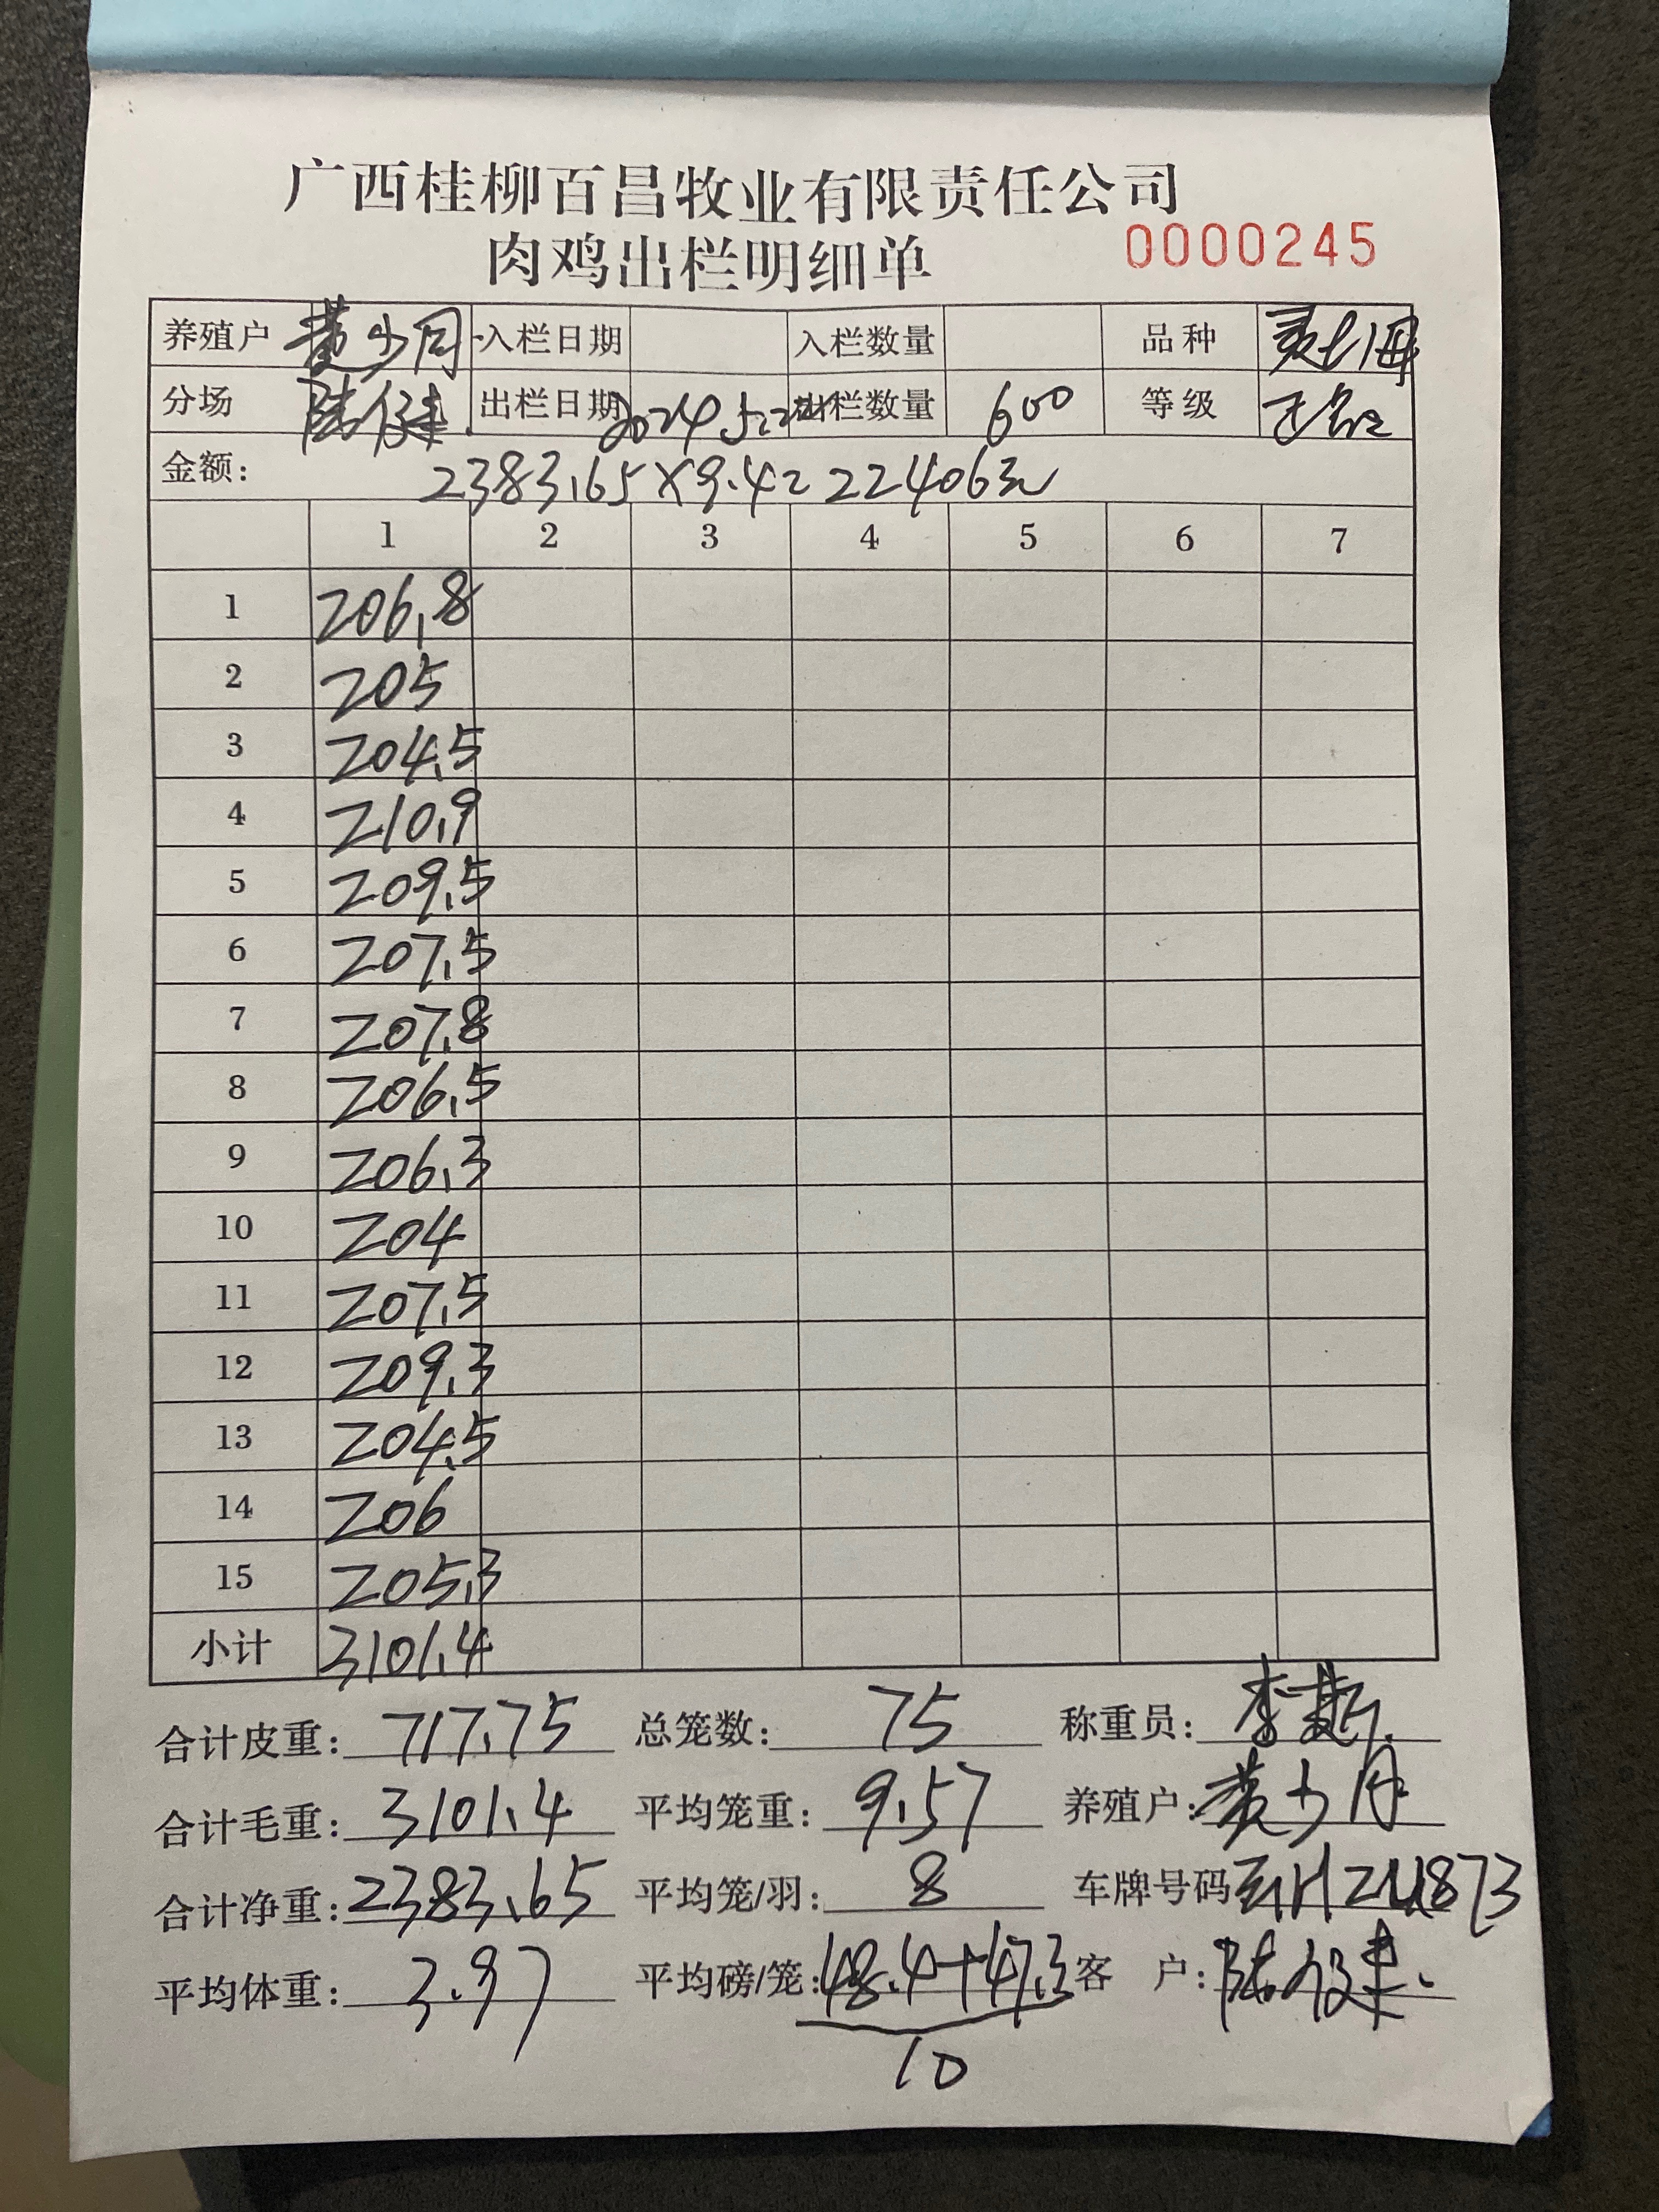 广西桂柳百昌牧业有限责任公司
肉鸡出栏明细单 0000245
养殖户 黄少月 入栏日期 入栏数量 品种
分场 出栏日期 2024.5.22 出栏数量 600 等级
金额: 2383.65×9.4=22406元
1 2 3 4 5 6 7
1 206.8
2 205
3 204.5
4 210.9
5 209.5
6 207.5
7 207.8
8 206.5
9 206.3
10 204
11 207.5
12 209.3
13 204.5
14 206
15 205.3
小计 3101.4
合计皮重: 717.75 总笼数: 75 称重员:
合计毛重: 3101.4 平均笼重: 9.57 养殖户: 黄少月
合计净重: 2383.65 平均笼/羽: 8 车牌号码
平均体重: 3.97 平均磅/笼: 48.4+47.3 客 户:
10